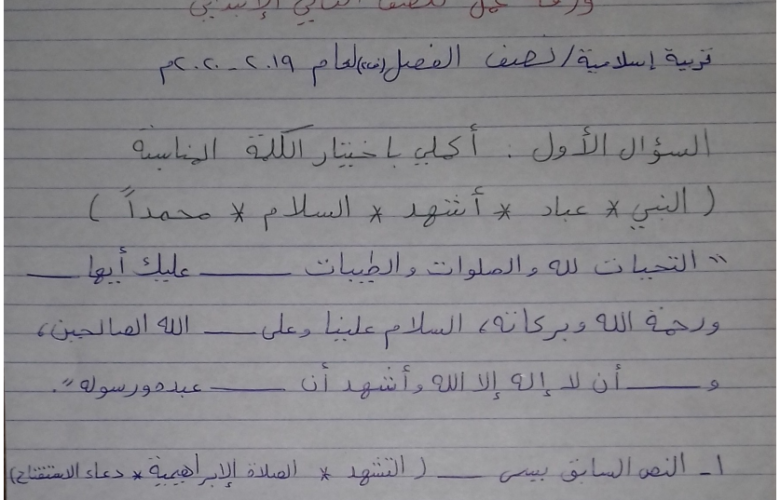 ورقة عمل للصف الثاني الإبتدائي
تربية إسلامية/نصف الفصل(ف٢)لعام ٢٠١٩-٢٠٢٠م
السؤال الأول : أكملي باختيار الكلمة المناسبة
( النبي * عباد * أشهد * السلام * محمداً )
" التحيات لله والصلوات والطيبات ـــــ عليك أيها ـــــ
ورحمة الله وبركاته، السلام علينا وعلى ـــــ الله الصالحين،
و ـــــ أن لا إله إلا الله وأشهد أن ـــــ عبده ورسوله".
١- النص السابق يسمى ـــــ ( التشهد * الصلاة الإبراهيمية * دعاء الاستفتاح)